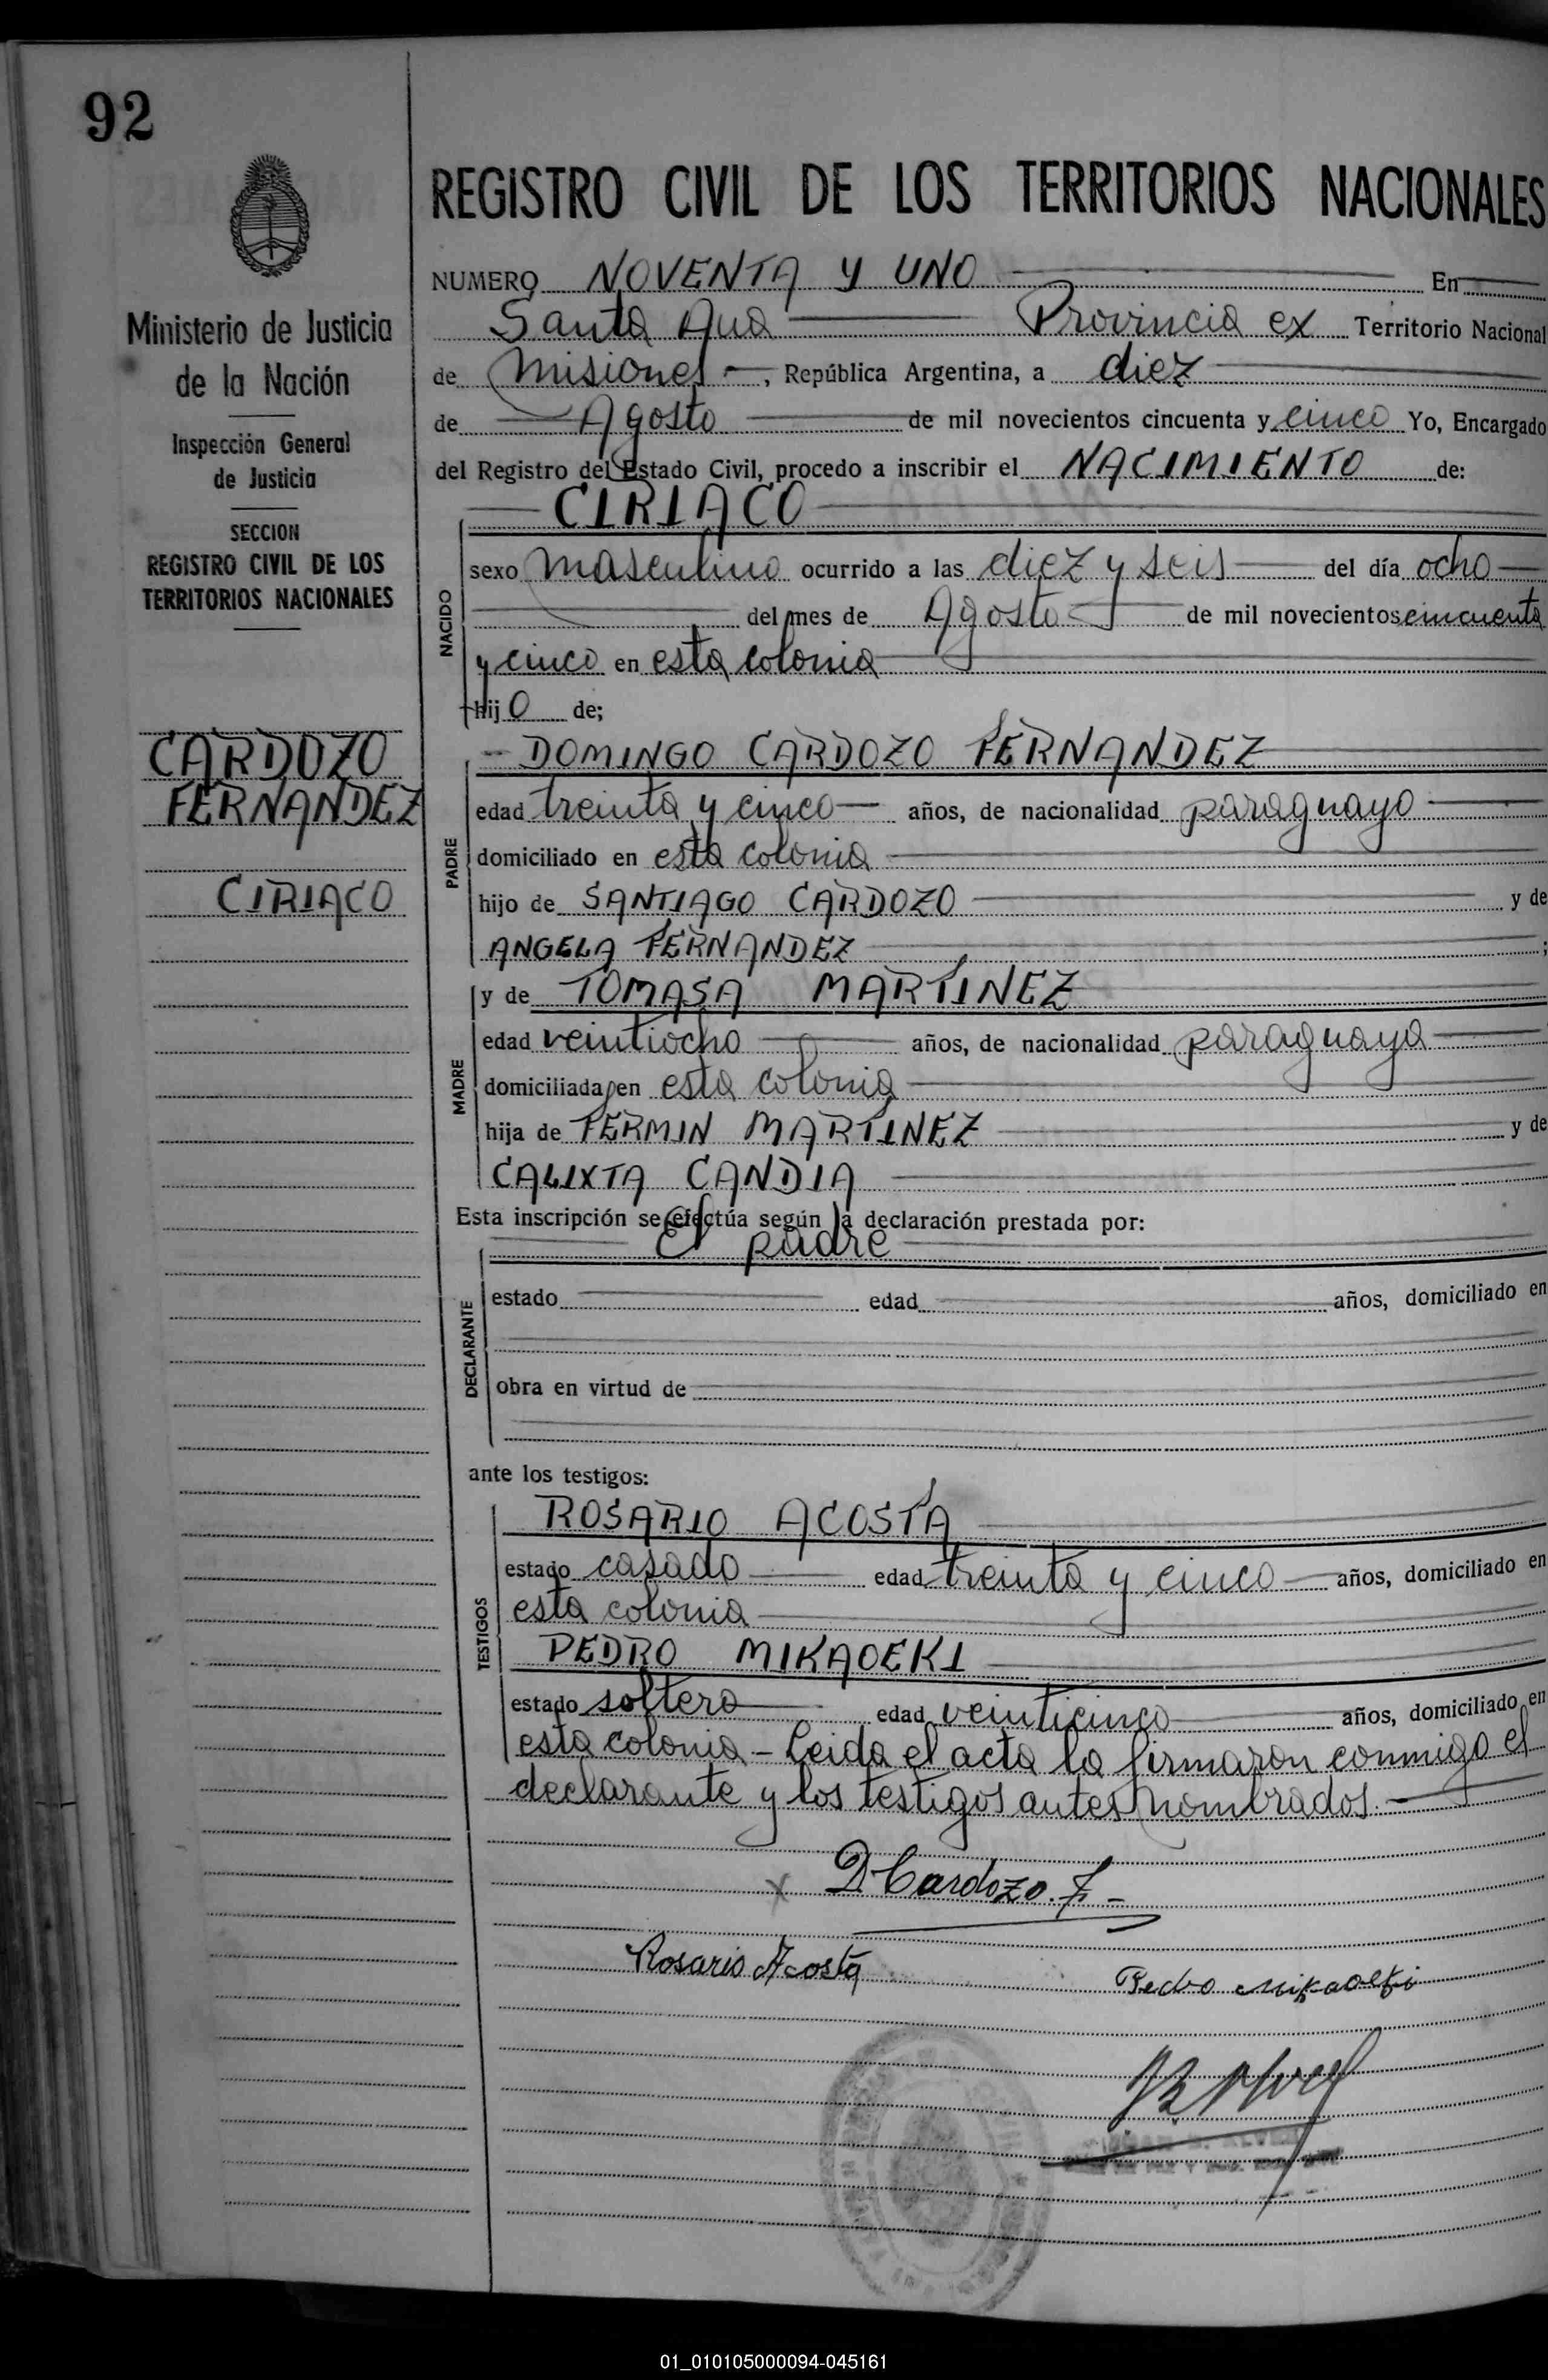 92
Ministerio de Justicia
de la Nación
Inspección General
de Justicia
SECCION
REGISTRO CIVIL DE LOS
TERRITORIOS NACIONALES
CARDOZO
FERNANDEZ
CIRIACO
REGISTRO CIVIL DE LOS TERRITORIOS NACIONALES
NUMERO NOVENTA Y UNO En
Santa Ana Provincia ex Territorio Nacional
de Misiones, República Argentina, a diez
de Agosto de mil novecientos cincuenta y cinco Yo, Encargado
del Registro del Estado Civil, procedo a inscribir el NACIMIENTO de:
CIRIACO
NACIDO
sexo masculino ocurrido a las diez y seis del día ocho
del mes de Agosto de mil novecientos cincuenta
y cinco en esta colonia
hijo de;
DOMINGO CARDOZO FERNANDEZ
PADRE
edad treinta y cinco años, de nacionalidad paraguayo
domiciliado en esta colonia
hijo de SANTIAGO CARDOZO y de
ANGELA FERNANDEZ ;
y de TOMASA MARTÍNEZ
MADRE
edad veintiocho años, de nacionalidad paraguaya
domiciliada en esta colonia
hija de FERMIN MARTÍNEZ y de
CALIXTA CANDIA
Esta inscripción se efectúa según la declaración prestada por:
El padre
DECLARANTE
estado edad años, domiciliado en
obra en virtud de
ante los testigos:
TESTIGOS
ROSARIO ACOSTA
estado casado edad treinta y cinco años, domiciliado en
esta colonia
PEDRO MIKAOEKI
estado soltero edad veinticinco años, domiciliado en
esta colonia - Leida el acta la firmaron conmigo el
declarante y los testigos antes nombrados.
x D. Cardozo. F. -
Rosario Acosta
Pedro Mikaoeki
01_010105000094-045161